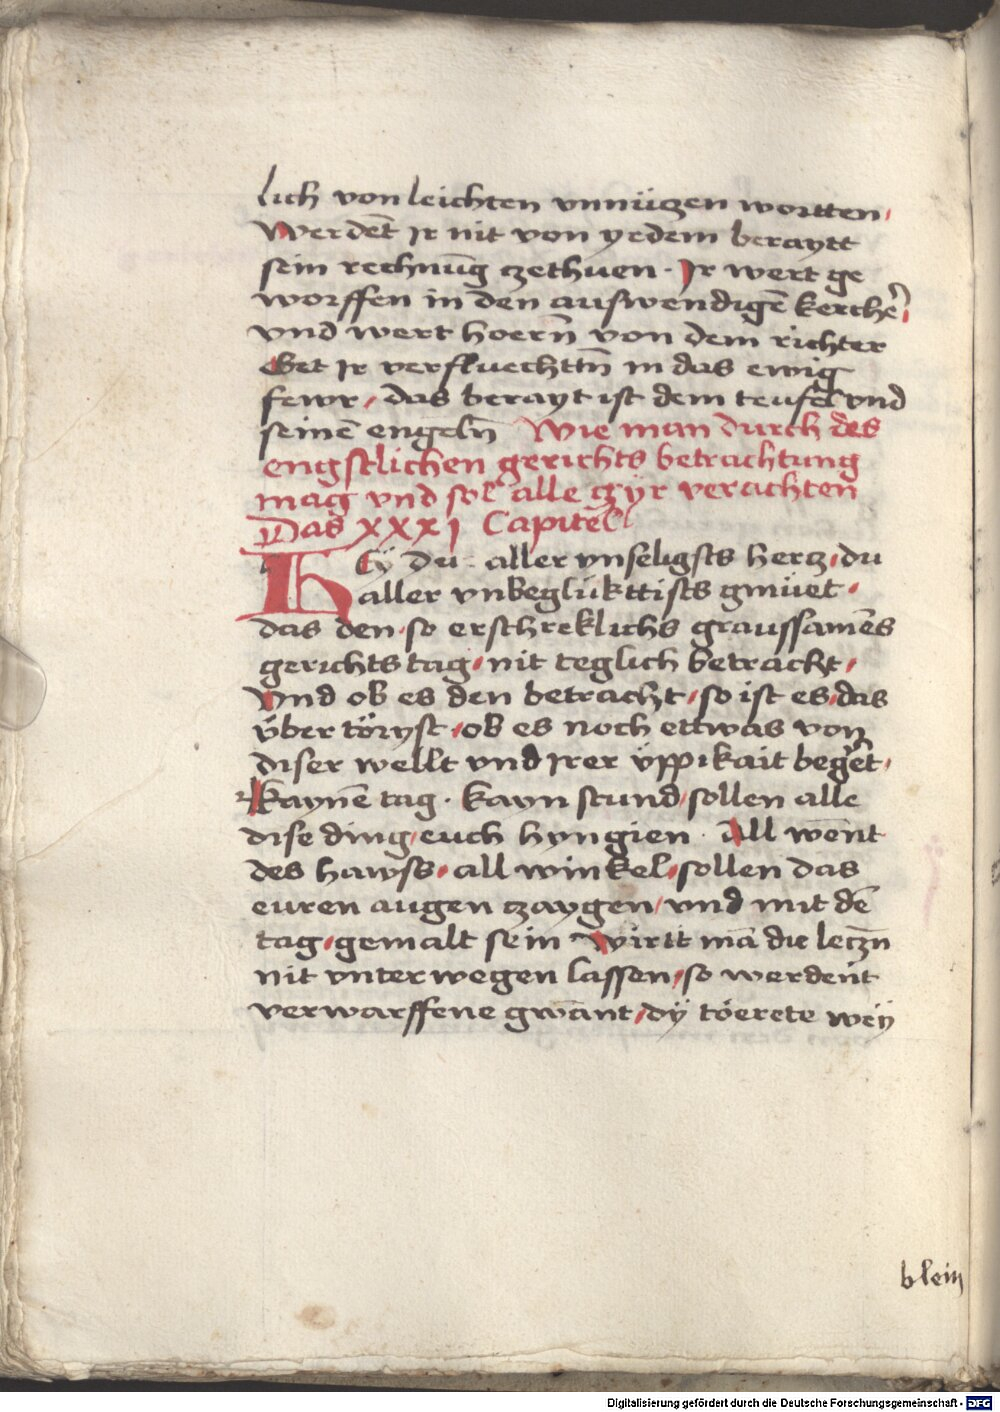 lich von leichten vnnüczen wortten,
Werdēt Ir nit von yedem beraytt
sein rechnūg czethuen · Ir wert ge
worffen in den auswendigē kerchē,
vnd wert hoerñ von dem richter
Get Ir verfluechttñ in das ewig
fewr, das berayt ist dem teufel vnd
seinē engelñ Wie man durch des
engstlichen gerichts betrachtung
mag vnd sol alle gyr verachten
Das xxxi Capitel
Hey du · aller vnseligsts hercz, du
aller vnbeglükttists gmüet ·
das den so erschreklichs graussamēs
gerichts tag, nit teglich betrackt,
Vnd ob es den betracht, so ist es, das
über töryst, ob es noch ettwas von
diser wellt vnd Irer üppikait begert,
kaynē tag · kayn stund, sollen alle
dise ding, euch hyngien · All went
des hawss, all winkel, sollen das
euren augen czaygen, vnd mit dē
tag, gemalt sein Wirtt mā die leczñ
nit vnterwegen lassen, so werdent
verwarffene gwānt, dÿ töerete weÿ
blein
Digitalisierung gefördert durch die Deutsche Forschungsgemeinschaft - DFG